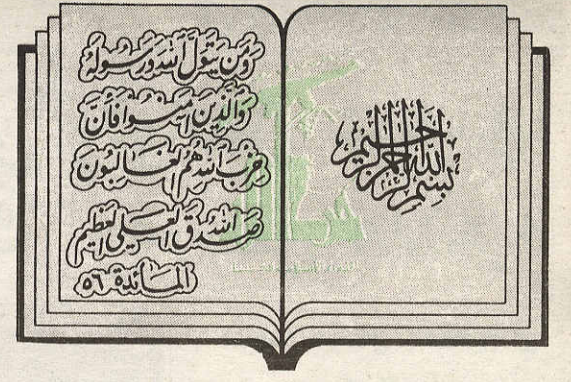 بسم الله الرحمن الرحيم
ومن يتول الله ورسوله
والذين آمنوا فإن
حزب الله هم الغالبون
صدق الله العلي العظيم
المائدة ٥٦